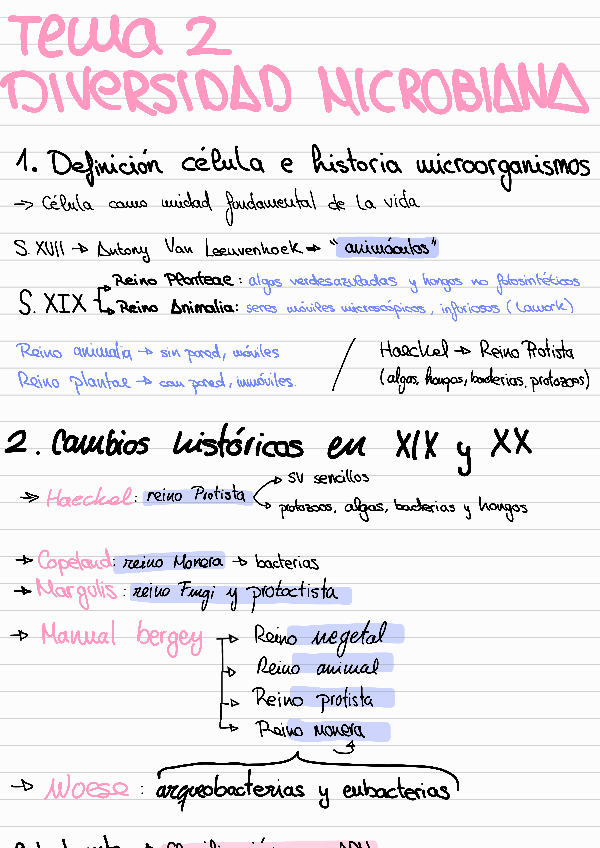 Tema 2
DIVERSIDAD MICROBIANA
1. Definición célula e historia microorganismos
→ Célula como unidad fundamental de la vida
S. XVII → Antony Van Leeuvenhoek → "animáculos"
S. XIX
Reino Planteae: algas verdesazuladas y hongos no fotosintéticos
Reino Animalia: seres móviles microscópicos, infusiosos (Lamark)
Reino animalia → sin pared, móviles
Reino plantae → con pared, inmóviles.
/
Haeckel → Reino Protista
(algas, hongos, bacterias, protozoos)
2. Cambios históricos en XIX y XX
→ Haeckel: reino Protista
→ SV sencillos
→ protozoos, algas, bacterias y hongos
→ Copeland: reino Monera → bacterias
→ Margulis: reino Fungi y protoctista
→ Manual bergey
→ Reino vegetal
→ Reino animal
→ Reino protista
→ Reino monera
→ Woese: arqueobacterias y eubacterias